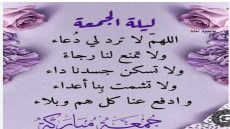 ليلة الجمعة
اللهم لا ترد لي دعاء
ولا تمنع لنا رجاءً
ولا تسكن جسدنا داء
ولا تشمت بنا أعداء
وادفع عنا كل هم وبلاء
جمعة مباركة